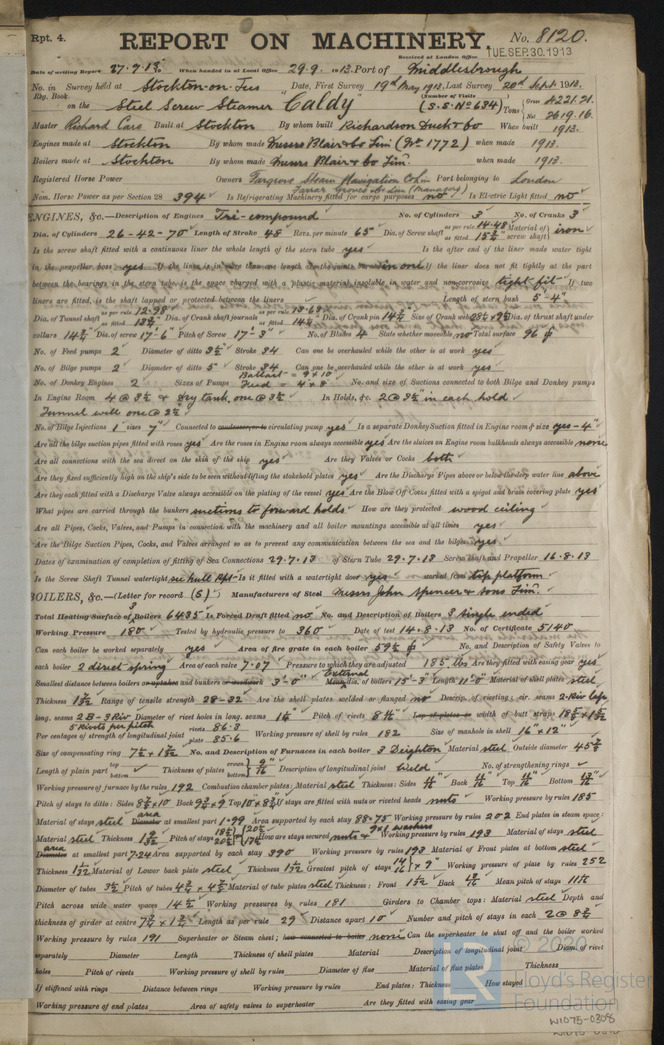 Rpt. 4. REPORT ON MACHINERY. No. 8120.
Received at London Office TUE.SEP.30.1913
Date of writing Report 27.9.13. When handed in at Local Office 29.9.1913. Port of Middlesbrough
No. in Survey held at Stockton-on-Tees Date, First Survey 19th May 1913. Last Survey 20th Sept. 1913.
Reg. Book. (Number of Visits
on the Steel Screw Steamer Caldy (S.S. No 634) Tons Gross 4221.21. Net 2619.16.
Master Richard Care Built at Stockton By whom built Richardson Duck & Co When built 1913.
Engines made at Stockton By whom made Messrs Blair & Co Lim. (No. 1772) when made 1913.
Boilers made at Stockton By whom made Messrs Blair & Co Lim. when made 1913.
Registered Horse Power Owners Fargrove Steam Navigation Co Lim Port belonging to London
Farrar Groves & Co Lim (Managers)
Nom. Horse Power as per Section 28 394 Is Refrigerating Machinery fitted for cargo purposes no Is Electric Light fitted no
ENGINES, &c.—Description of Engines Tri-compound No. of Cylinders 3 No. of Cranks 3
Dia. of Cylinders 26-42-70 Length of Stroke 48 Revs. per minute 65 Dia. of Screw shaft as per rule 14.48 as fitted 15⅜ Material of screw shaft iron
Is the screw shaft fitted with a continuous liner the whole length of the stern tube yes Is the after end of the liner made water tight
in the propeller boss yes If the liner is in more than one length are the joints burned in one If the liner does not fit tightly at the part
between the bearings in the stern tube, is the space charged with a plastic material insoluble in water and non-corrosive tight fit If two
liners are fitted, is the shaft lapped or protected between the liners Length of stern bush 5'-4"
Dia. of Tunnel shaft as per rule 12.98 as fitted Dia. of Crank shaft journals as per rule 13.63 as fitted Dia. of Crank pin 14¾ Size of Crank webs Dia. of thrust shaft under
collars 14¾ Dia. of screw 17'-6" Pitch of Screw 17'-3" No. of Blades 4 State whether moveable no Total surface 96
No. of Feed pumps 2 Diameter of ditto 3½ Stroke 34 Can one be overhauled while the other is at work yes
No. of Bilge pumps 2 Diameter of ditto 5 Stroke 34 Can one be overhauled while the other is at work yes
No. of Donkey Engines 2 Sizes of Pumps Ballast = 9 x 10 Feed = 4 x 8 No. and size of Suctions connected to both Bilge and Donkey pumps
In Engine Room 4 @ 3½ & Dry tank, one @ 3½ In Holds, &c. 2 @ 3½" in each hold
Tunnel well one @ 2½
No. of Bilge Injections 1 sizes 7" Connected to condenser, or to circulating pump yes Is a separate Donkey Suction fitted in Engine room & size yes - 4"
Are all the bilge suction pipes fitted with roses yes Are the roses in Engine room always accessible yes Are the sluices on Engine room bulkheads always accessible none
Are all connections with the sea direct on the skin of the ship yes Are they Valves or Cocks both
Are they fixed sufficiently high on the ship's side to be seen without lifting the stokehold plates yes Are the Discharge Pipes above or below the deep water line above
Are they each fitted with a Discharge Valve always accessible on the plating of the vessel yes Are the Blow Off Cocks fitted with a spigot and brass covering plate yes
What pipes are carried through the bunkers suctions to forward holds How are they protected wood ceiling
Are all Pipes, Cocks, Valves, and Pumps in connection with the machinery and all boiler mountings accessible at all times yes
Are the Bilge Suction Pipes, Cocks, and Valves arranged so as to prevent any communication between the sea and the bilges yes
Dates of examination of completion of fitting of Sea Connections 29.7.13 of Stern Tube 29.7.13 Screw shaft and Propeller 16.8.13
Is the Screw Shaft Tunnel watertight see hull Rpt Is it fitted with a watertight door yes worked from top platform
BOILERS, &c.—(Letter for record (S)) Manufacturers of Steel Messrs John Spencer & Sons Lim.
Total Heating Surface of 3 Boilers 6435 Is Forced Draft fitted no No. and Description of Boilers 3 single ended
Working Pressure 180 Tested by hydraulic pressure to 360 Date of test 14.8.13 No. of Certificate 5140
Can each boiler be worked separately yes Area of fire grate in each boiler 59½ No. and Description of Safety Valves to
each boiler 2 direct spring Area of each valve 7.07 Pressure to which they are adjusted 185 lbs Are they fitted with easing gear yes
Smallest distance between boilers or uptakes and bunkers or woodwork 3'-0" External dia. of boilers 15'-3" Length 11'-0" Material of shell plates steel
Thickness Range of tensile strength 28-32 Are the shell plates welded or flanged no Descrip. of riveting: cir. seams 2-Riv lap
long. seams 2B-3Riv Diameter of rivet holes in long. seams 1¼ Pitch of rivets Lap of plates or width of butt straps
5 Rivets per pitch
Per centages of strength of longitudinal joint rivets 86.3 plate 85.6 Working pressure of shell by rules 182 Size of manhole in shell 16" x 12"
Size of compensating ring No. and Description of Furnaces in each boiler 3 Deighton Material steel Outside diameter 45¾
Length of plain part top bottom Thickness of plates crown bottom Description of longitudinal joint weld No. of strengthening rings
Working pressure of furnace by the rules 192 Combustion chamber plates: Material steel Thickness: Sides Back Top Bottom
Pitch of stays to ditto: Sides Back Top If stays are fitted with nuts or riveted heads nuts Working pressure by rules 185
Material of stays steel area at smallest part 1.99 Area supported by each stay 88.75 Working pressure by rules 202 End plates in steam space:
Material steel Thickness Pitch of stays How are stays secured nuts & washers Working pressure by rules 193 Material of stays steel
area at smallest part 7.24 Area supported by each stay 390 Working pressure by rules 193 Material of Front plates at bottom steel
Thickness Material of Lower back plate steel Thickness Greatest pitch of stays 14 x 9" Working pressure of plate by rules 252
Diameter of tubes 3½ Pitch of tubes Material of tube plates steel Thickness: Front Back Mean pitch of stays
Pitch across wide water spaces 14½ Working pressures by rules 181 Girders to Chamber tops: Material steel Depth and
thickness of girder at centre Length as per rule 29 Distance apart 10 Number and pitch of stays in each 2 @ 8¾
Working pressure by rules 191 Superheater or Steam chest; how connected to boiler none Can the superheater be shut off and the boiler worked
separately Diameter Length Thickness of shell plates Material Description of longitudinal joint Diam. of rivet
holes Pitch of rivets Working pressure of shell by rules Diameter of flue Material of flue plates Thickness
If stiffened with rings Distance between rings Working pressure by rules End plates: Thickness How stayed
Working pressure of end plates Area of safety valves to superheater Are they fitted with easing gear
© 2020
Lloyd's Register
Foundation
W1075-0308